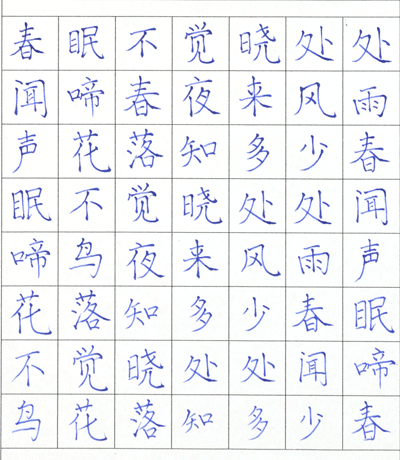 春眠不觉晓处处
闻啼春夜来风雨
声花落知多少春
眠不觉晓处处闻
啼鸟夜来风雨声
花落知多少春眠
不觉晓处处闻啼
鸟花落知多少春